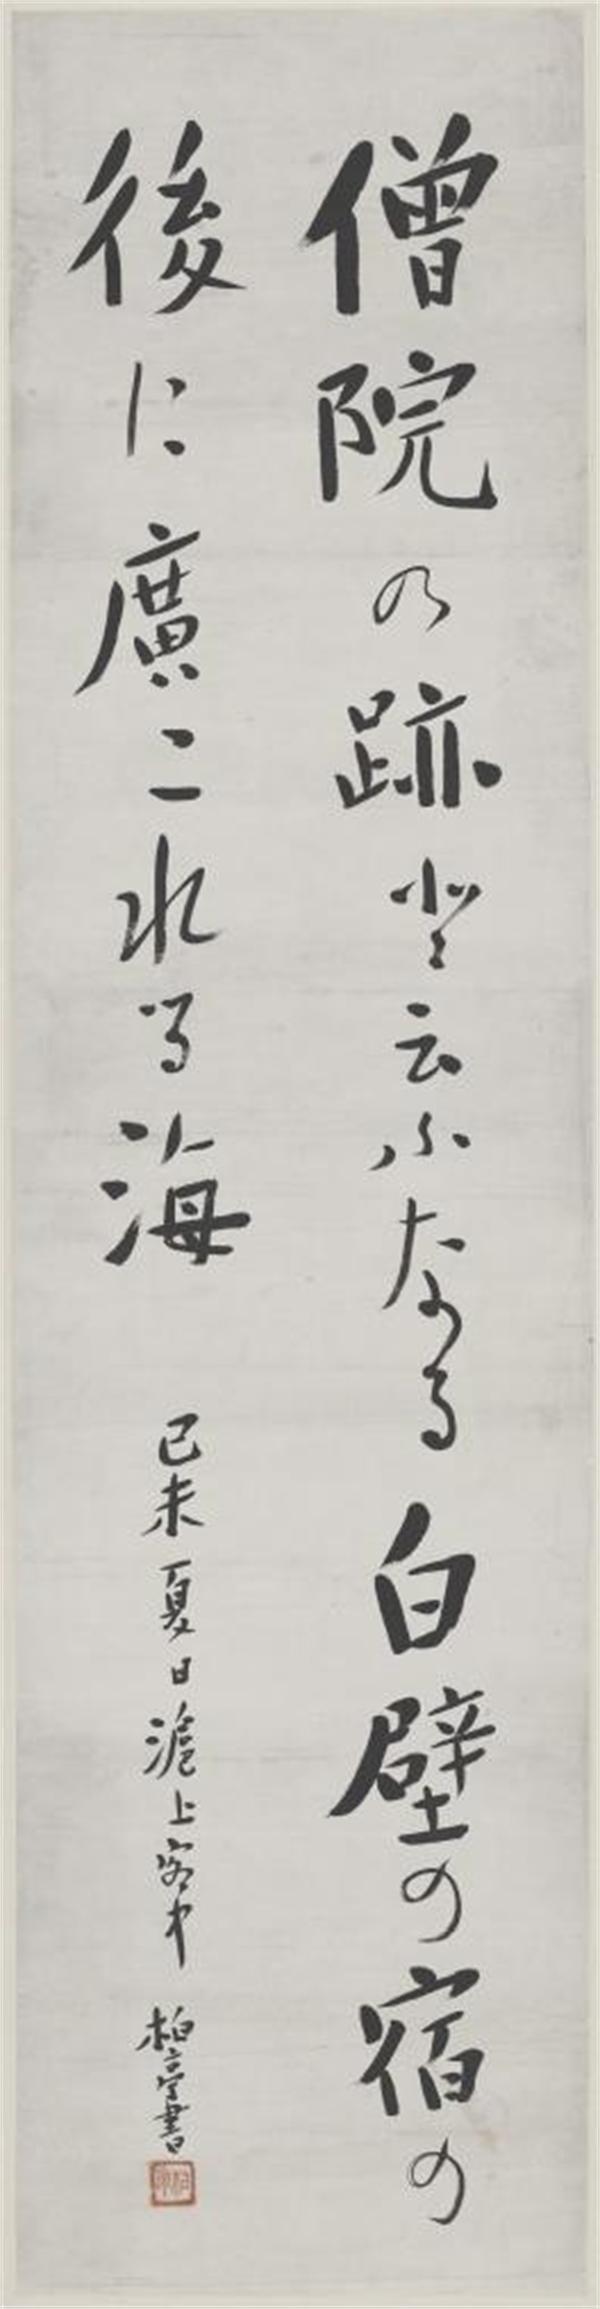 僧院の跡と云ふなる白壁の宿の
後に廣これる海
己未夏日滬上客中 柏亭書